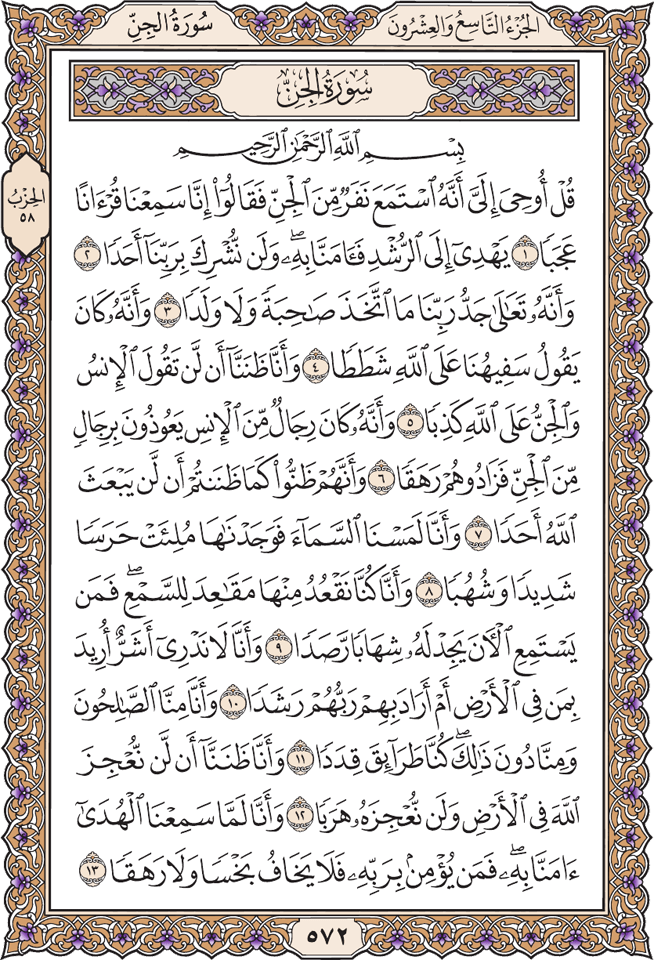 الجُزْءُ التَّاسِعُ وَالعِشْرُونَ
سُورَةُ الجِنِّ
سُورَةُ الجِنِّ
الحِزْبُ
٥٨
بِسْمِ ٱللَّهِ ٱلرَّحْمَٰنِ ٱلرَّحِيمِ
قُلْ أُوحِيَ إِلَيَّ أَنَّهُ ٱسْتَمَعَ نَفَرٌ مِّنَ ٱلْجِنِّ فَقَالُوٓا۟ إِنَّا سَمِعْنَا قُرْءَانًا
عَجَبًا ١ يَهْدِىٓ إِلَى ٱلرُّشْدِ فَـَٔامَنَّا بِهِۦ ۖ وَلَن نُّشْرِكَ بِرَبِّنَآ أَحَدًا ٢
وَأَنَّهُۥ تَعَٰلَىٰ جَدُّ رَبِّنَا مَا ٱتَّخَذَ صَٰحِبَةً وَلَا وَلَدًا ٣ وَأَنَّهُۥ كَانَ
يَقُولُ سَفِيهُنَا عَلَى ٱللَّهِ شَطَطًا ٤ وَأَنَّا ظَنَنَّآ أَن لَّن تَقُولَ ٱلْإِنسُ
وَٱلْجِنُّ عَلَى ٱللَّهِ كَذِبًا ٥ وَأَنَّهُۥ كَانَ رِجَالٌ مِّنَ ٱلْإِنسِ يَعُوذُونَ بِرِجَالٍ
مِّنَ ٱلْجِنِّ فَزَادُوهُمْ رَهَقًا ٦ وَأَنَّهُمْ ظَنُّوا۟ كَمَا ظَنَنتُمْ أَن لَّن يَبْعَثَ
ٱللَّهُ أَحَدًا ٧ وَأَنَّا لَمَسْنَا ٱلسَّمَآءَ فَوَجَدْنَٰهَا مُلِئَتْ حَرَسًا
شَدِيدًا وَشُهُبًا ٨ وَأَنَّا كُنَّا نَقْعُدُ مِنْهَا مَقَٰعِدَ لِلسَّمْعِ ۖ فَمَن
يَسْتَمِعِ ٱلْـَٔانَ يَجِدْ لَهُۥ شِهَابًا رَّصَدًا ٩ وَأَنَّا لَا نَدْرِىٓ أَشَرٌّ أُرِيدَ
بِمَن فِى ٱلْأَرْضِ أَمْ أَرَادَ بِهِمْ رَبُّهُمْ رَشَدًا ١٠ وَأَنَّا مِنَّا ٱلصَّٰلِحُونَ
وَمِنَّا دُونَ ذَٰلِكَ ۖ كُنَّا طَرَآئِقَ قِدَدًا ١١ وَأَنَّا ظَنَنَّآ أَن لَّن نُّعْجِزَ
ٱللَّهَ فِى ٱلْأَرْضِ وَلَن نُّعْجِزَهُۥ هَرَبًا ١٢ وَأَنَّا لَمَّا سَمِعْنَا ٱلْهُدَىٰٓ
ءَامَنَّا بِهِۦ ۖ فَمَن يُؤْمِنۢ بِرَبِّهِۦ فَلَا يَخَافُ بَخْسًا وَلَا رَهَقًا ١٣
٥٧٢